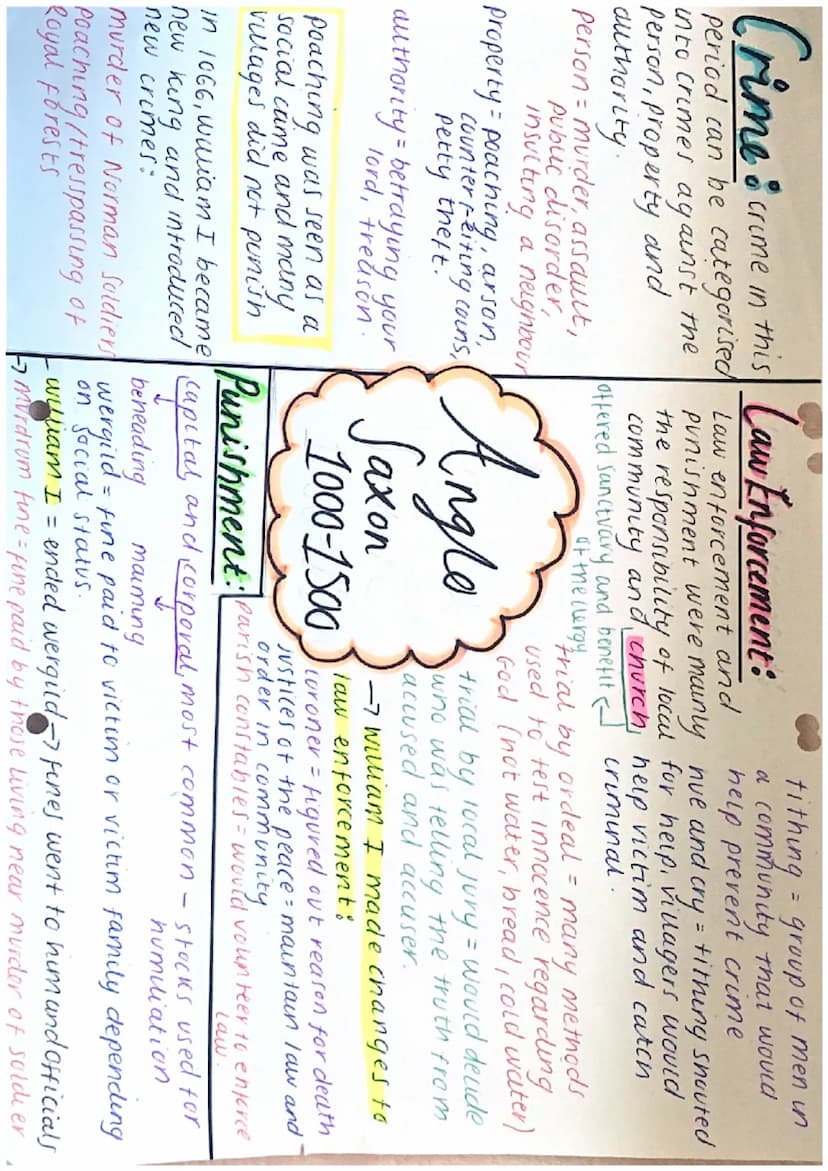 Crime: crime in this
period can be categorised
into crimes against the
person, property and
authority.
person = murder, assault,
public disorder,
insulting a neighbour
property = poaching, arson,
counterfeiting coins,
petty theft.
authority = betraying your
lord, treason.
poaching was seen as a
social came and many
villages did not punish
in 1066, William I became
new king and introduced
new crimes:
murder of Norman Soldiers
poaching/tresspassing of
Royal forests
Law Enforcement:
Law enforcement and
punishment were mainly
the responsibility of local
community and church
offered sanctuary and benefit
of the clergy
tithing = group of men in
a community that would
help prevent crime
hue and cry = tithing shouted
for help, villagers would
help victim and catch
criminal.
trial by ordeal = many methods
used to test innocence regarding
God (hot water, bread, cold water)
trial by local jury = would decide
who was telling the truth from
accused and accuser.
→ William I made changes to
law enforcement:
coroner = figured out reason for death
justices of the peace = maintain law and
order in community
parish constables = would volunteer to enforce
law.
Anglo
Saxon
1000-1500
Punishment:
capital and corporal most common - stocks used for
humiliation
beheading maiming
wergild = fine paid to victim or victim family depending
on social status.
- William I = ended wergild → fines went to him and officials
→ murdrum fine = fine paid by those living near murder of soldier